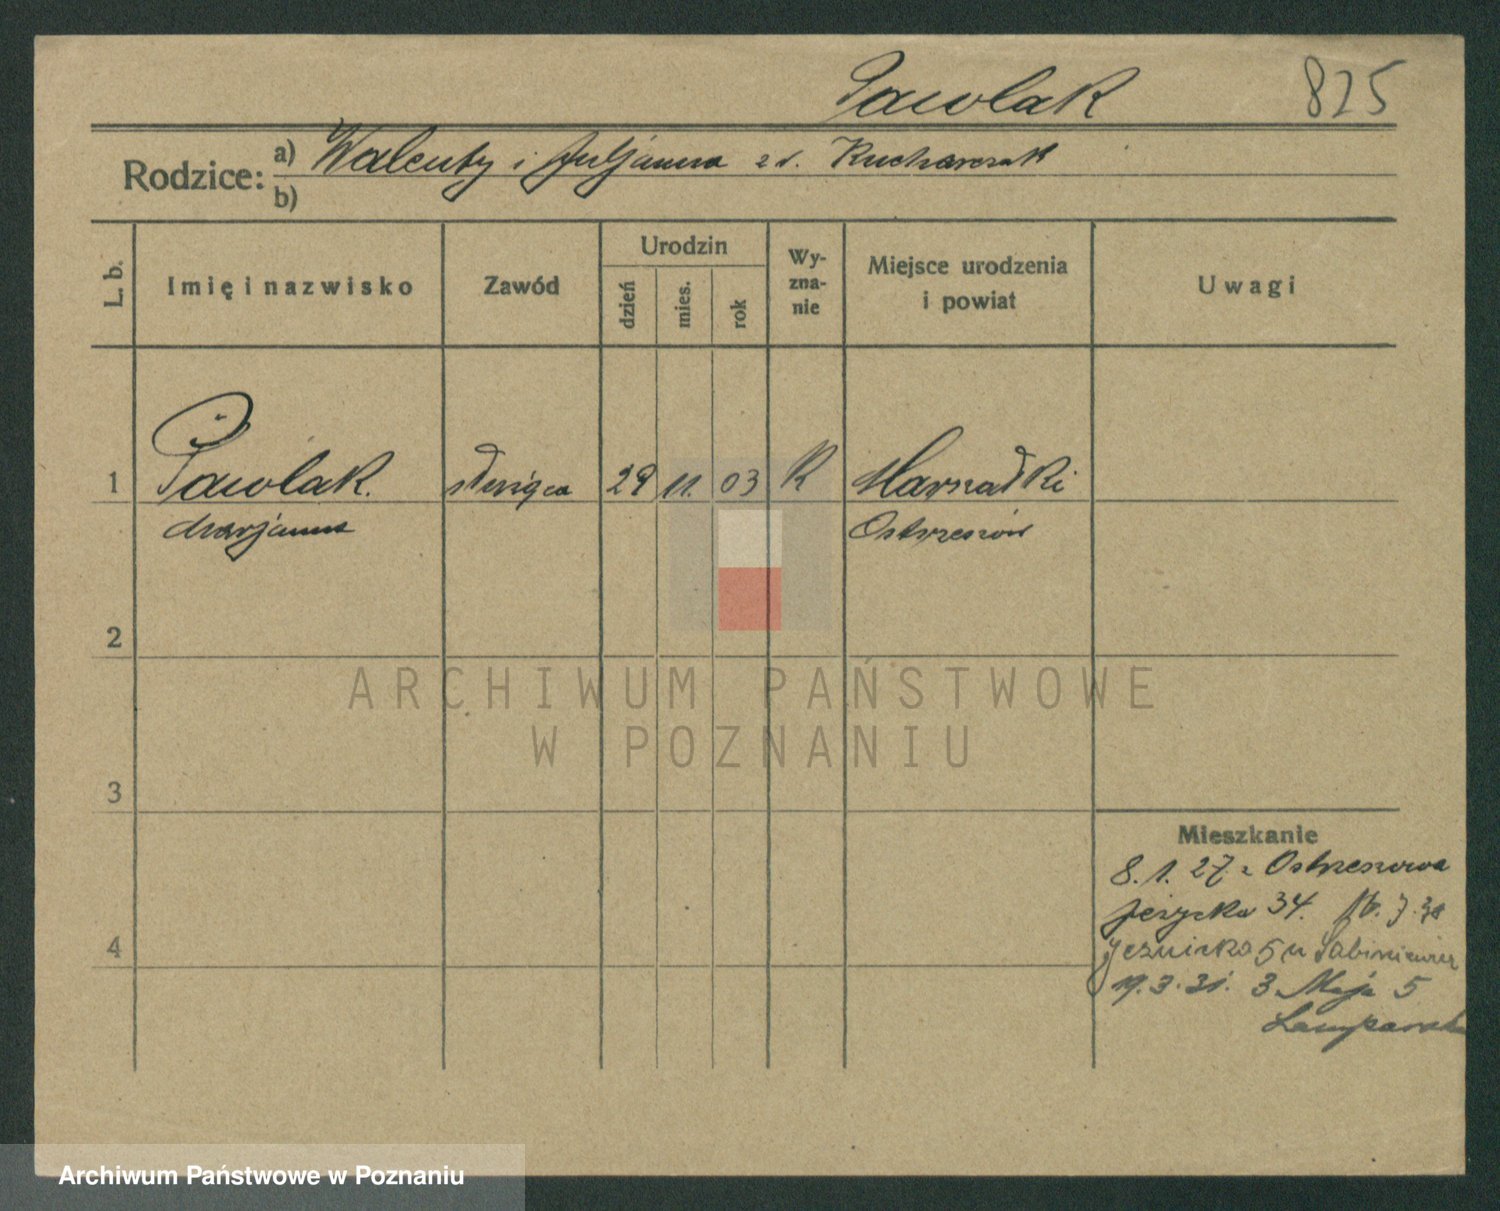 Pawlak 825
Rodzice: a) Walenty i Juljanna z d. Kucharczak
b)
L. b. Imię i nazwisko Zawód Urodzin dzień mies. rok Wyzna-nie Miejsce urodzenia i powiat Uwagi
1 Pawlak służąca 29 11. 03 R Marszałki
Marjanna Ostrzeszów
2
ARCHIWUM PAŃSTWOWE
W POZNANIU
3
Mieszkanie
8. 1. 27 z Ostrzeszowa
Jeżycka 34.
4
5 u
19. 3. 31. 3 Maja 5
Archiwum Państwowe w Poznaniu